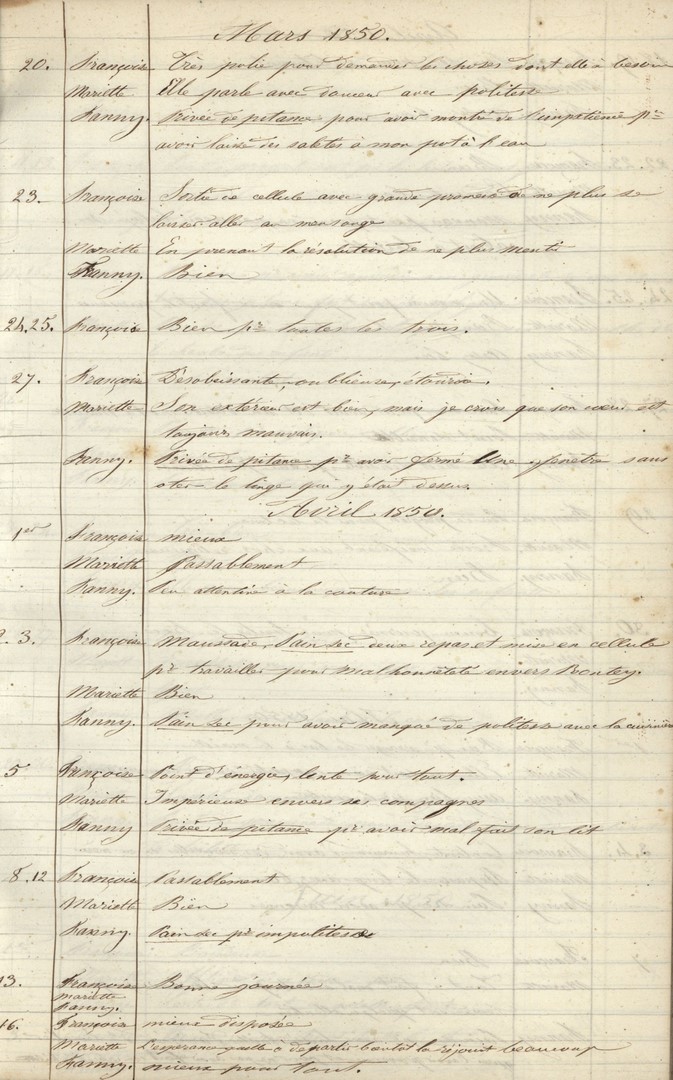 Mars 1850.
20. Françoise Très polie pour demander les choses dont elle a besoin
Mariette Elle parle avec douceur avec politesse
Fanny. Privée de pitance pour avoir montré de l'impatience pr
avoir laissé des saletés à mon pot à l'eau
23. Françoise Sortie de cellule avec grande promesse de ne plus se
laisser aller au mensonge
Mariette En prenant la résolution de ne plus mentir
Fanny. Bien
24.25. Françoise Bien pr toutes les trois.
27. Françoise Désobéissante, oublieuse, étourdie
Mariette Son extérieur est bien, mais je crois que son cœur est
toujours mauvais.
Fanny. Privée de pitance pr avoir fermé Une fenêtre sans
oter le linge qui y était dessus.
Avril 1850.
1er Françoise mieux
Mariette Passablement
Fanny. Peu attentive à la couture
2. 3. Françoise Maussade, Pain sec deux repas et mise en cellule
pr travailler pour malhonnêteté envers
Mariette Bien
Fanny. Pain sec pour avoir manqué de politesse avec la cuisinière
5 Françoise Point d'énergie, lente pour tout.
Mariette Impérieuse envers ses compagnes
Fanny Privée de pitance pr avoir mal fait son lit
8.12 Françoise Passablement
Mariette Bien
Fanny. Pain sec pr impolitesse
13. Françoise Bonne journée
Mariette
Fanny.
16. Françoise mieux disposée
Mariette L'espérance qu'elle a de partir bientôt la réjouit beaucoup
Fanny. mieux pour tout.